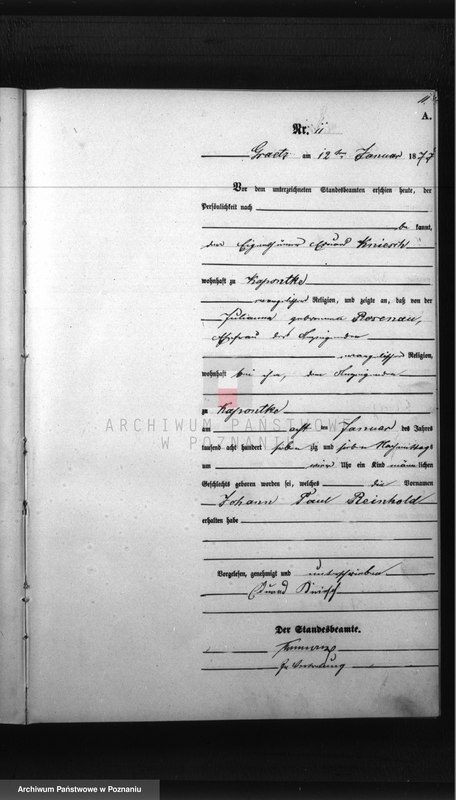 11
A.
Nr. 11
Graetz am 12ten Januar 1877
Vor dem unterzeichneten Standesbeamten erschien heute, der
Persönlichkeit nach
be kannt,
der Eigenthümer Eduard
wohnhaft zu Kaponke
evangelischer Religion, und zeigte an, daß von der
Julianna geborenen Rosenau,
Ehefrau des Anzeigenden
evangelischer Religion,
wohnhaft bei ihm, dem Anzeigenden
zu Kaponke
ARCHIWUM PAŃSTWOWE
W POZNANIU
am acht ten Januar des Jahres
tausend acht hundert sieben zig und sieben Nachmittags
um Uhr ein Kind männ lichen
Geschlechts geboren worden sei, welches die Vornamen
Johann Paul Reinhold
erhalten habe
Vorgelesen, genehmigt und unterschrieben
Eduard
Der Standesbeamte.
In Vertretung
Archiwum Państwowe w Poznaniu